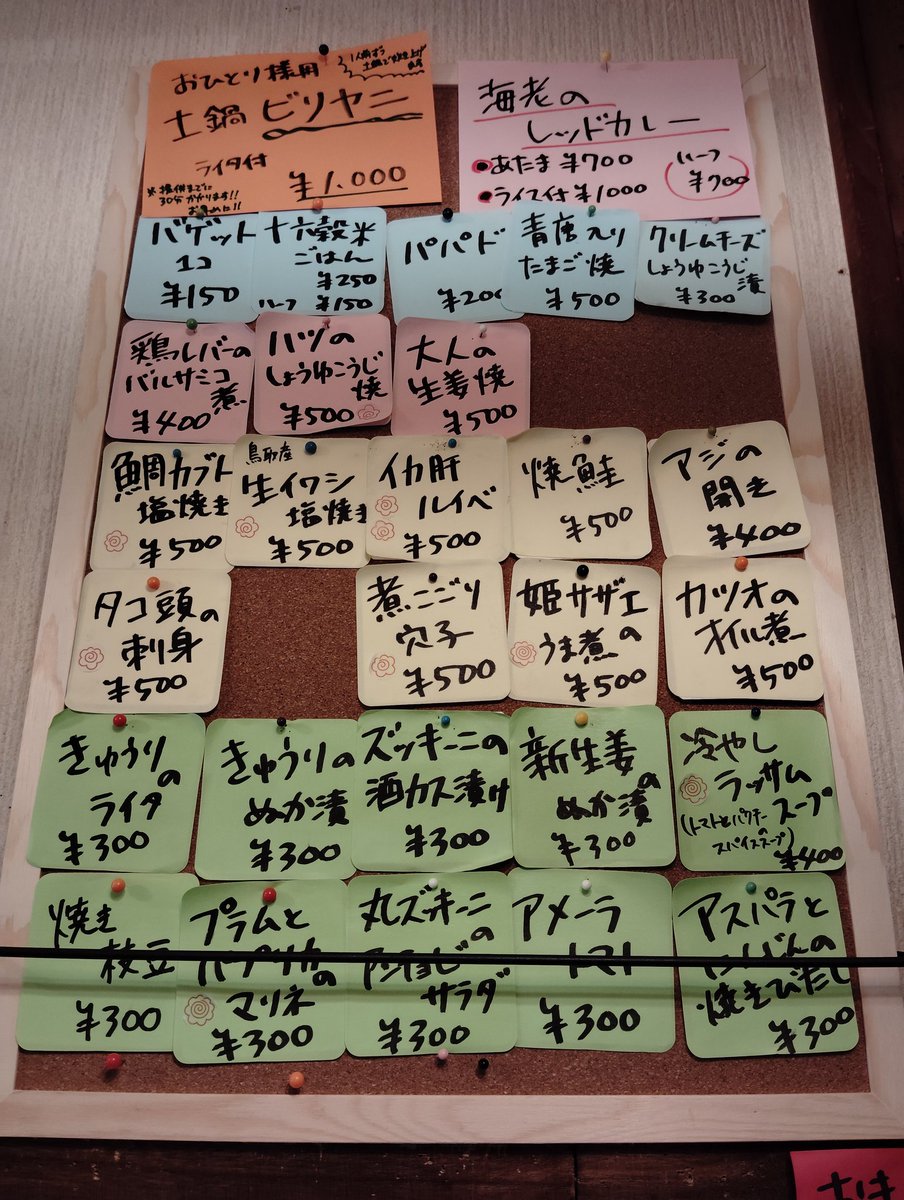 おひとり様用
土鍋ビリヤニ
ライタ付
¥1.000
※提供までに
30分かかります!!
海老の
レッドカレー
あたま ¥700
ライス付 ¥1000
ハーフ
¥700
バゲット
1コ
¥150
十六穀米
ごはん
¥250
ハーフ ¥150
パパド
¥200
青唐入り
たまご焼
¥500
クリームチーズ
しょうゆこうじ
漬
¥300
鶏レバーの
バルサミコ
煮
¥400
ハツの
しょうゆこうじ
焼
¥500
大人の
生姜焼
¥500
鯛カブト
塩焼き
¥500
鳥取産
生イワシ
塩焼き
¥500
イカ肝
ルイベ
¥500
焼鮭
¥500
アジの
開き
¥400
タコ頭の
刺身
¥500
煮こごり
穴子
¥500
姫サザエ
の
うま煮
¥500
カツオの
オイル煮
¥500
きゅうり
の
ライタ
¥300
きゅうりの
ぬか漬
¥300
ズッキーニの
酒カス漬け
¥300
新生姜
の
ぬか漬
¥300
冷やし
ラッサム
スープ
(トマトとパクチー
の
スパイススープ)
¥400
焼き
枝豆
¥300
プラムと
パプリカ
の
マリネ
¥300
丸ズッキーニ
の
アンチョビ
サラダ
¥300
アメーラ
トマト
¥300
アスパラと
にんじんの
焼きびたし
¥300